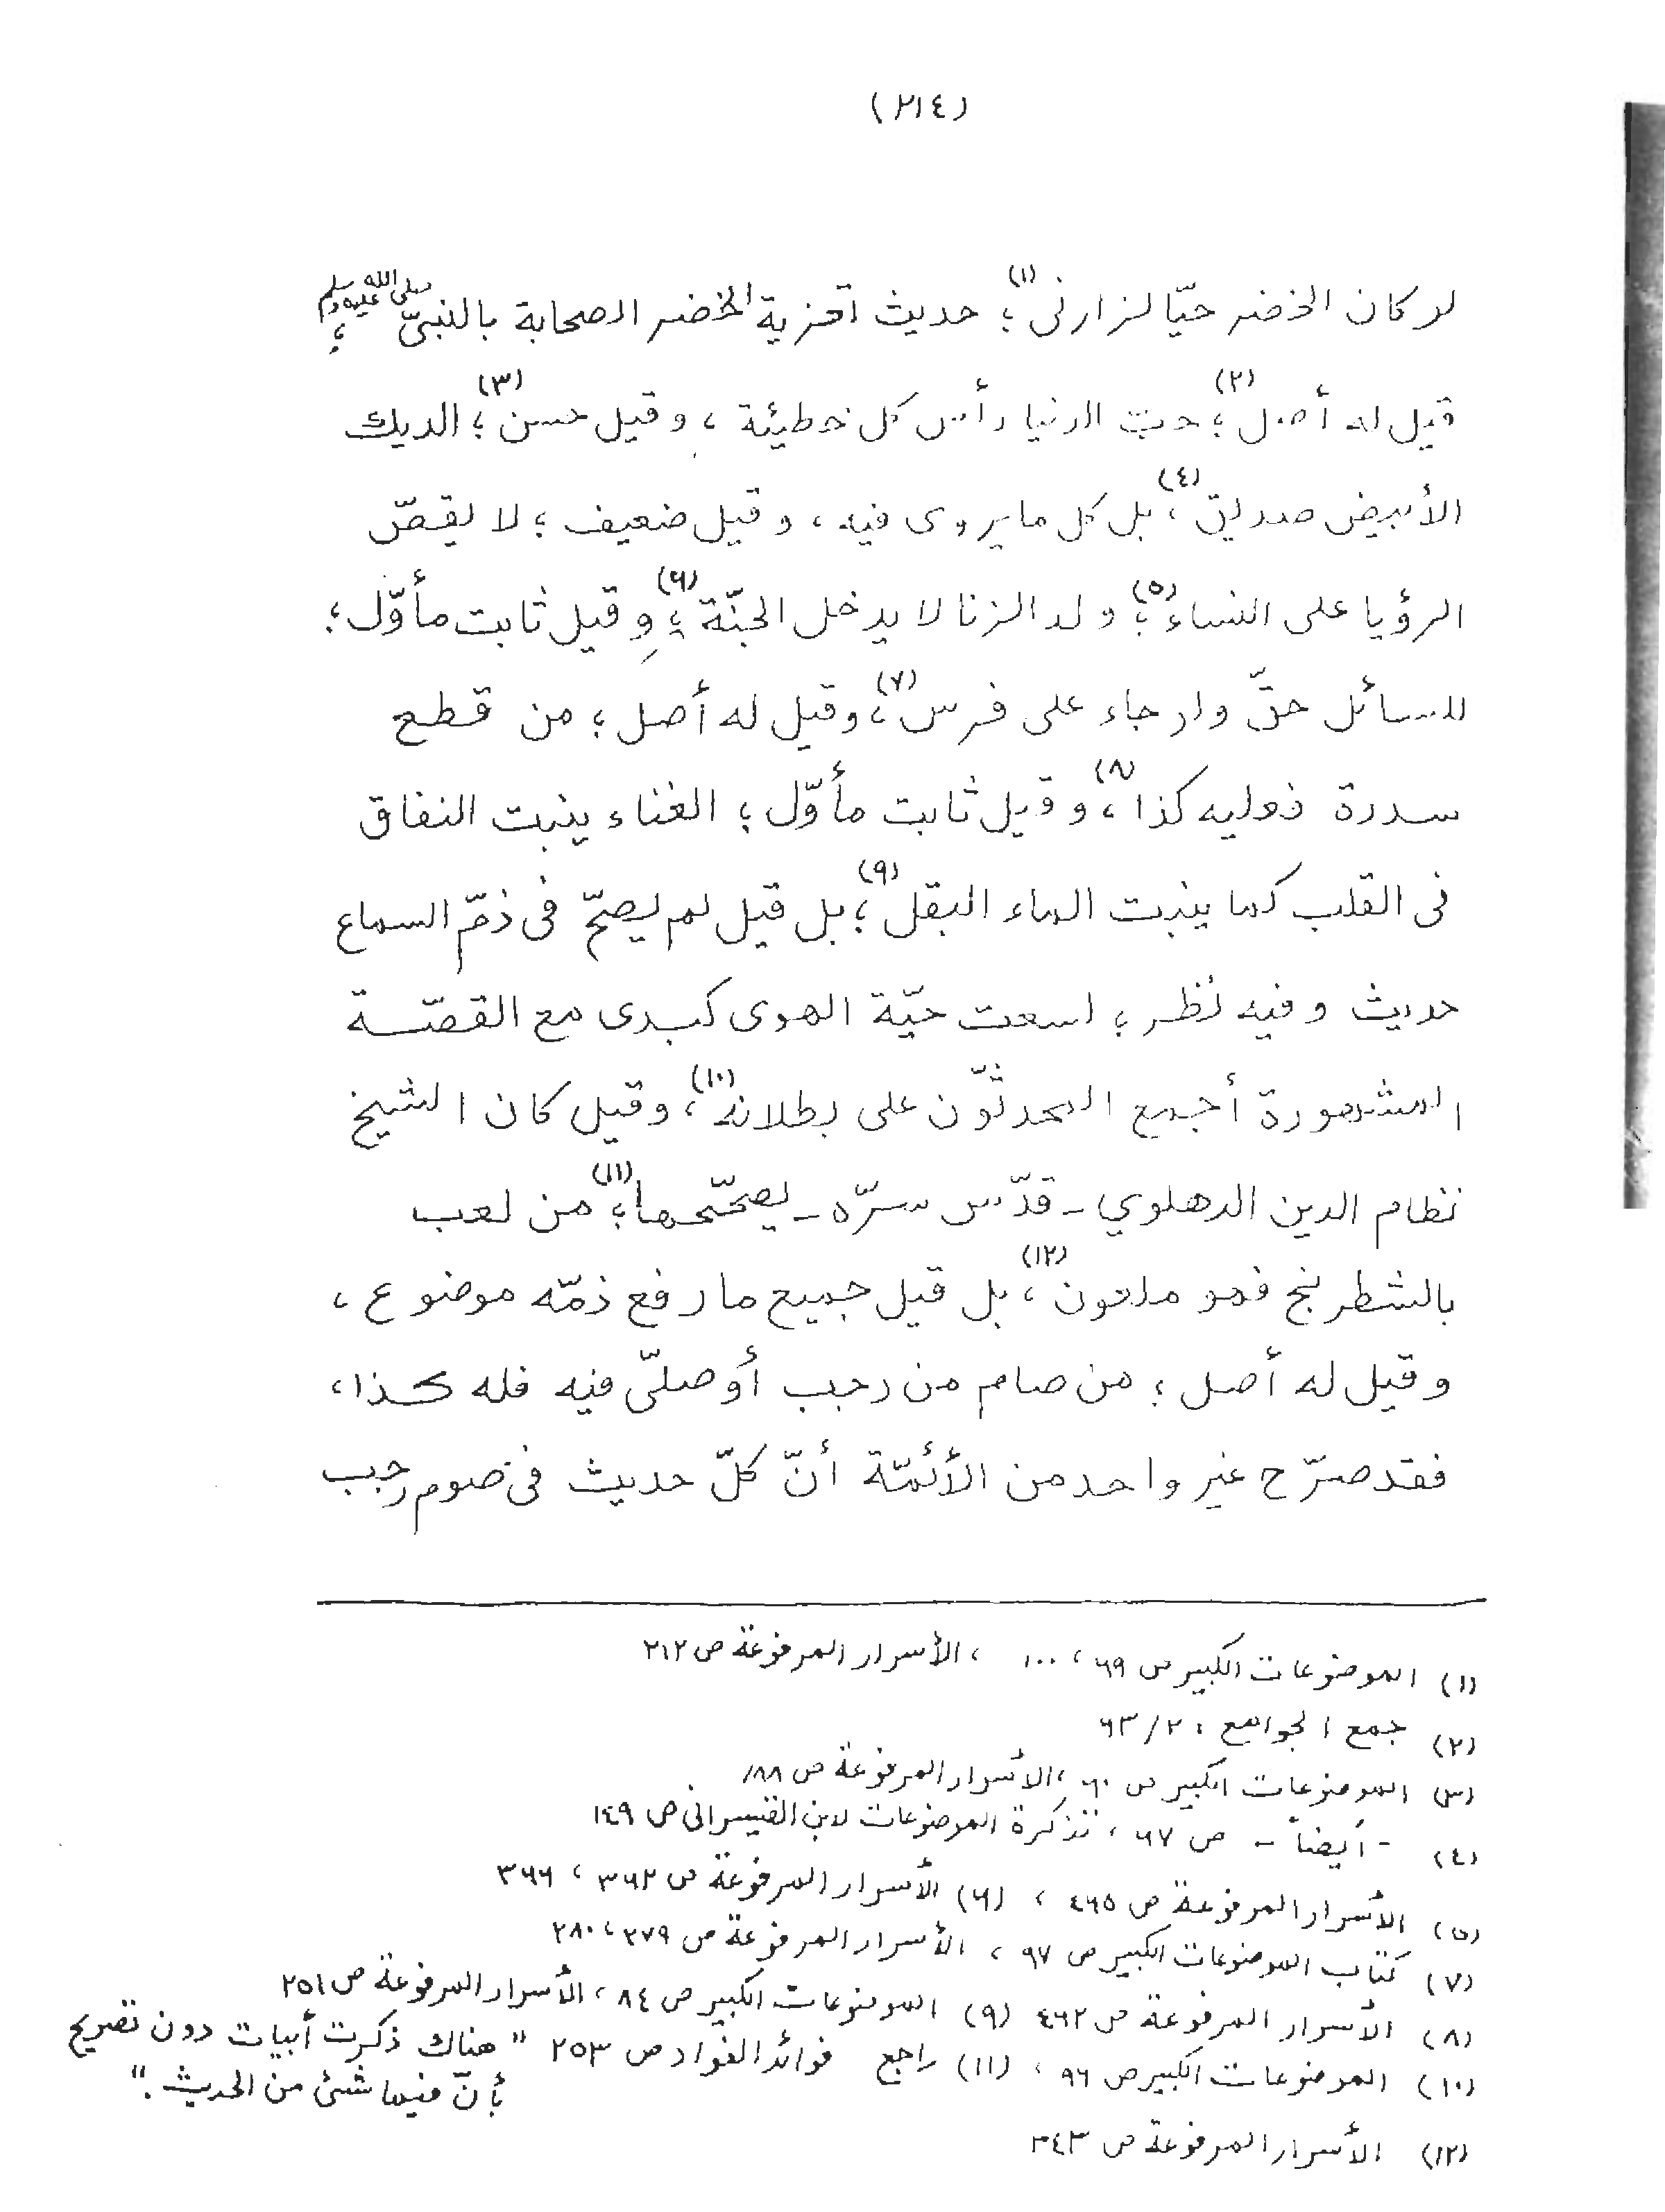 (٢١٤)
لو كان الخضر حيّا لزارنى (١)؛ حديث تعزية الخضر الصحابة بالنبىّ صلى الله عليه وسلم؛
قيل له أصل (٢)؛ حبّ الدنيا رأس كل خطيئة، وقيل حسن (٣)؛ الديك
الأبيض صديق (٤)، بل كل ما يروى فيه، وقيل ضعيف؛ لا يقصّ
الرؤيا على النساء (٥)؛ ولد الزنا لا يدخل الجنّة (٦)؛ وقيل ثابت مأوّل؛
للسائل حقّ ولو جاء على فرس (٧)، وقيل له أصل؛ من قطع
سدرة فعليه كذا (٨)، وقيل ثابت مأوّل؛ الغناء ينبت النفاق
فى القلب كما ينبت الماء البقل (٩)؛ بل قيل لم يصحّ فى ذمّ السماع
حديث وفيه نظر؛ لسعت حيّة الهوى كبدى مع القصّة
المشهورة أجمع المحدثّون على بطلانه (١٠)، وقيل كان الشيخ
نظام الدين الدهلوي - قدّس سرّه - يصحّحها (١١)؛ من لعب
بالشطرنج فهو ملعون (١٢)، بل قيل جميع ما رفع ذمّه موضوع،
وقيل له أصل؛ من صام من رجب أو صلّى فيه فله كذا،
فقد صرّح غير واحد من الأئمّة أنّ كلّ حديث فى صوم رجب
(١) الموضوعات الكبير ص ٦٩، ١٠٠، الأسرار المرفوعة ص ٢١٢
(٢) جمع الجوامع: ٦٣/٢
(٣) الموضوعات الكبير ص ٦٠، الأسرار المرفوعة ص ١٨٨
(٤) - أيضاً - ص ٦٧، تذكرة الموضوعات لابن القيسرانى ص ١٤٩
(٥) الأسرار المرفوعة ص ٤٦٥، (٦) الأسرار المرفوعة ص ٣٦٢، ٣٦٦
(٧) كتاب الموضوعات الكبير ص ٩٧، الأسرار المرفوعة ص ٢٧٩، ٢٨٠
(٨) الأسرار المرفوعة ص ٤٦٢ (٩) الموضوعات الكبير ص ٨٤، الأسرار المرفوعة ص ٢٥١
(١٠) الموضوعات الكبير ص ٩٦، (١١) راجع فوائد الفواد ص ٢٥٣ "هناك ذكرت أبيات دون تصريح
بأنّ فيها شئ من الحديث."
(١٢) الأسرار المرفوعة ص ٣٤٣